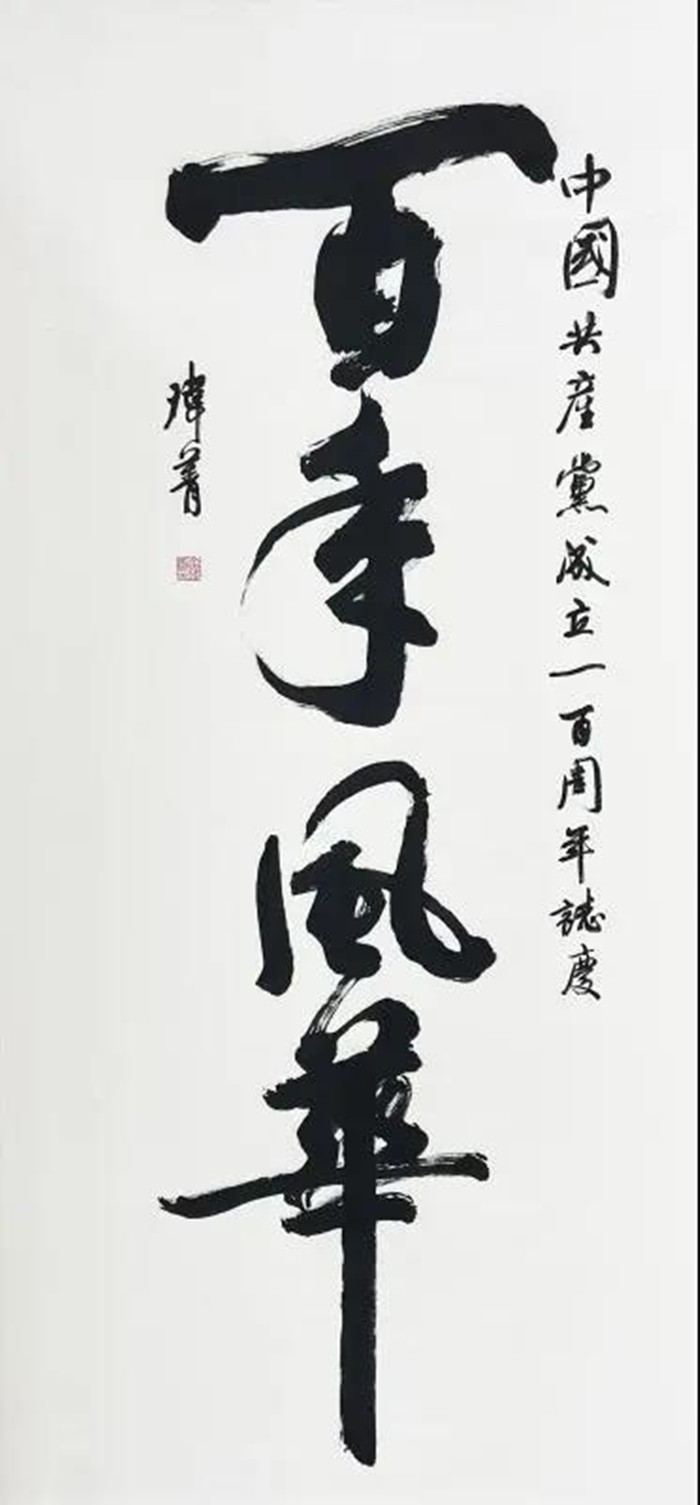 中國共產黨成立一百周年誌慶
百年風華
瑋菁